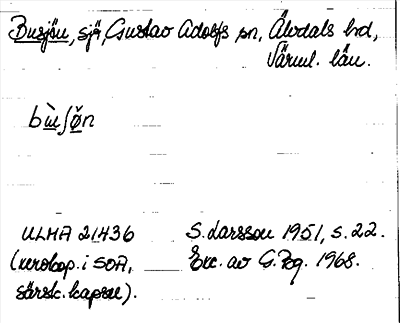 Busjön, sjö, Gustav Adolfs sn, Älvdals hd,
Värml. län.
bùʃø̌n
ULMA 21436 S. Larsson 1951, s. 22.
(xerokop. i SOA, Exc. av G. Bg. 1968.
särsk. kapsel).